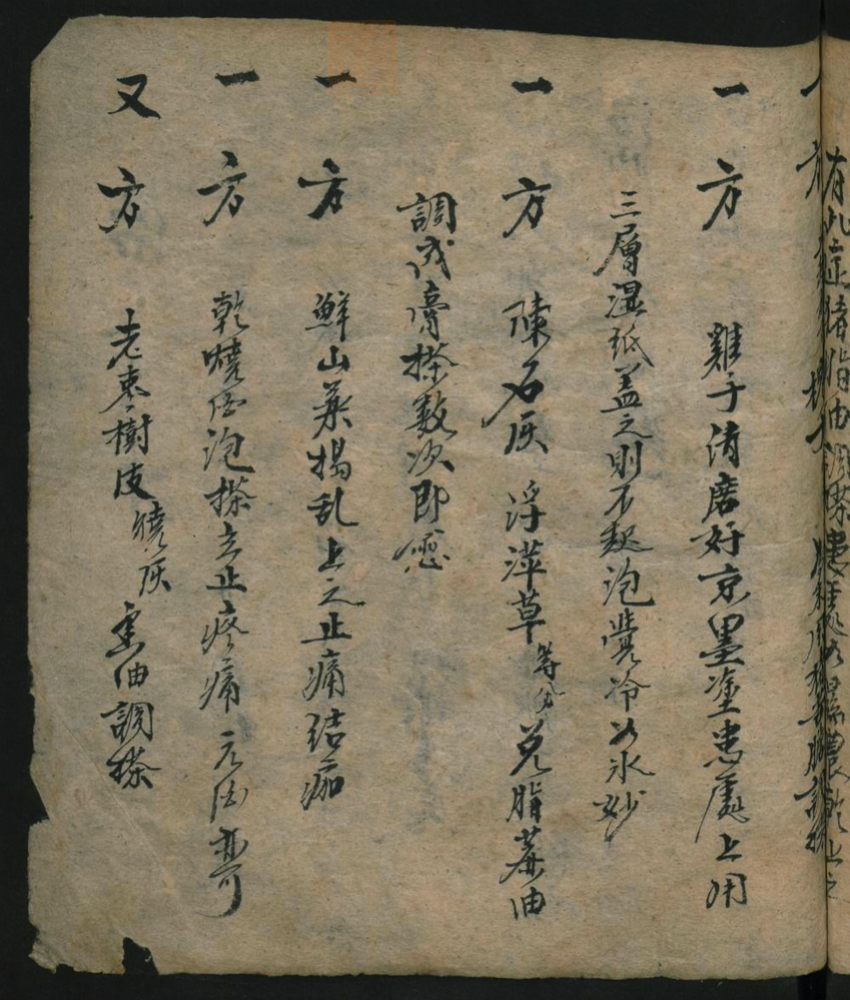 一方 雞子清磨好京墨塗患處上用
三層濕紙盖之則不起泡覺冷如氷妙
一方 陳石灰 浮萍草 等分 脂蔴油
調成膏搽数次即愈
一方 鮮山藥搗乱上之止痛结痂
一方 乾燒酒泡搽立止疼痛 元酒亦可
又方 老枣樹皮 燒灰 油調搽